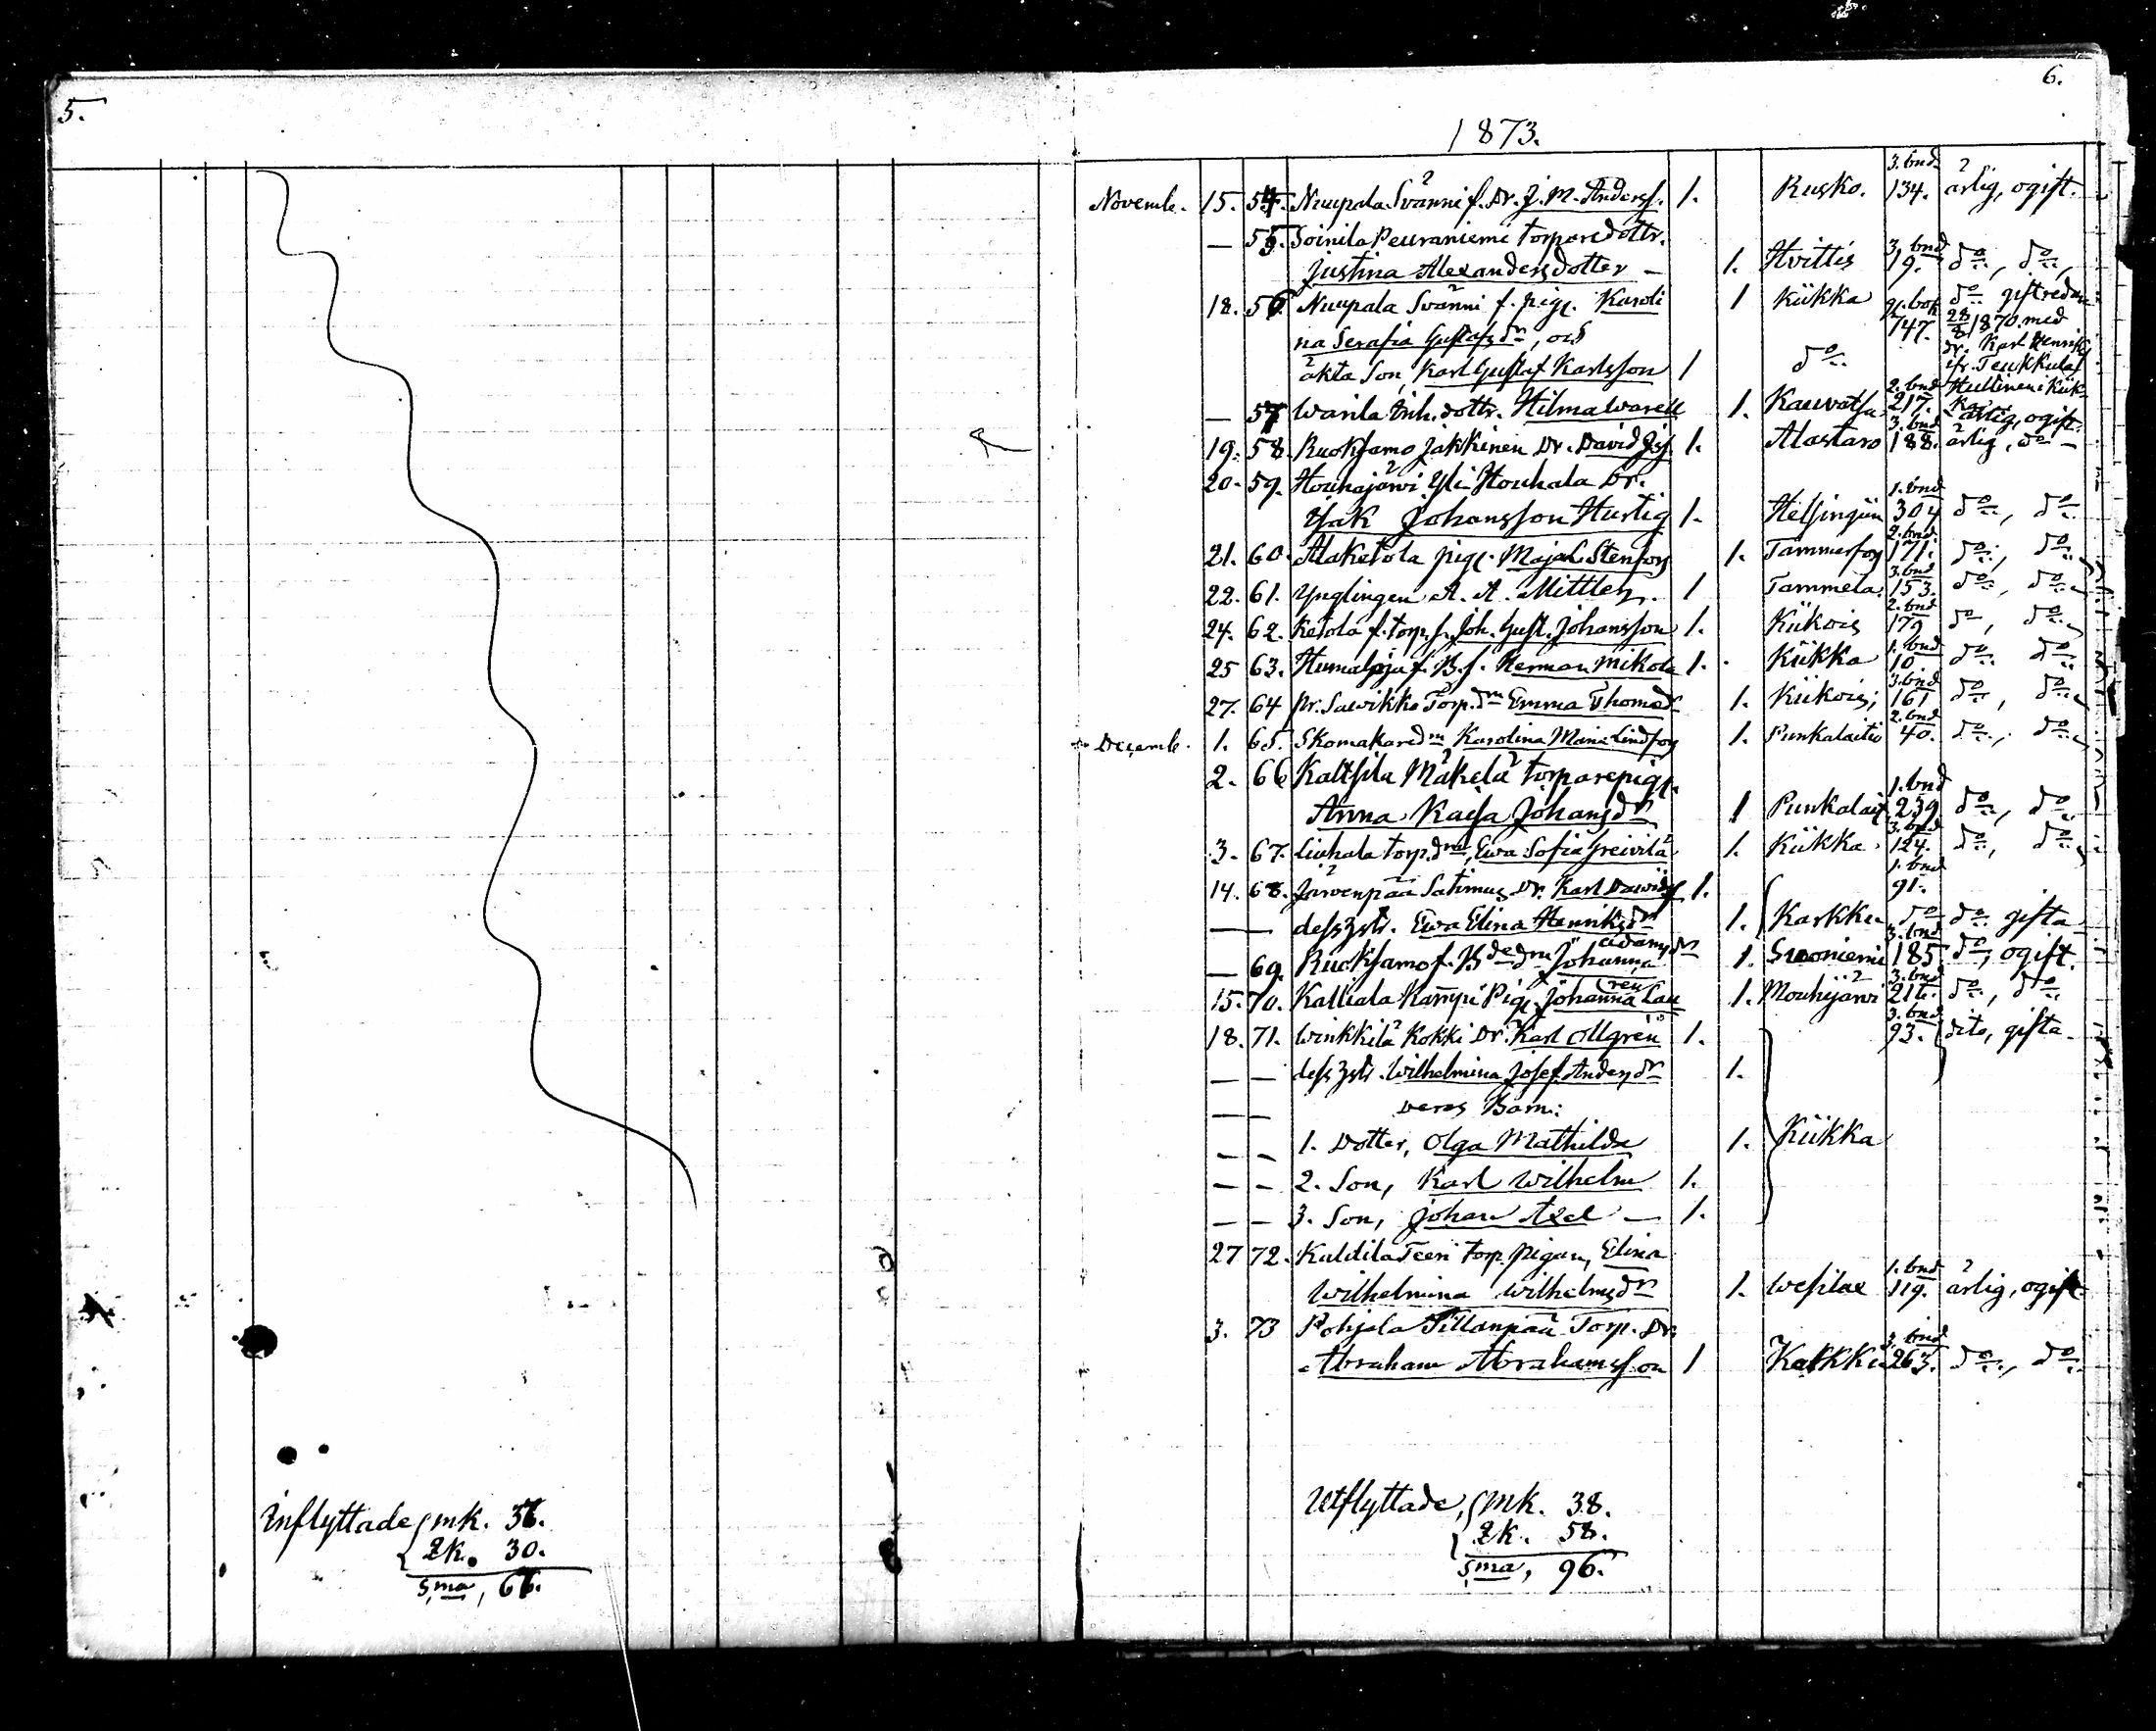 5.
Inflyttade { mk. 36.
qk. 30.
S:ma, 66.
6.
1873.
Novemb. 15. 54. Nuupala Svänni f. Dr. J. M. Andersf. 1. Rusko. 3. bnd. 134. ärlig, ogift.
— 55. Soinila Peuraniemi torparedottr.
Justina Alexandersdotter — 1. Hvittis 3. bnd 19. do, do,
18. 56. Nuupala Svänni f. pig. Karoli 1 Kiikka gl. bok 747. do gift redan
na Serafia Gustafsdr, och 28/8 1870 med
äkta Son, Karl Gustaf Karlsson 1 do dr. Karl Henriks
— 57 Warila Inh. dottr. Hilma Warell 1. Kauvatsa 2. bnd 217. ärlig, ogift.
19. 58. Ruoksamo Jakkinen Dr. David Jsf. 1. Alastaro 3. bnd 188. ärlig, do —
20. 59. Houhajärvi Yli Houhala Dr.
Isak Johansson Hurtig 1. Helsingin 1. bnd 304 do, do
21. 60. Alaketola pig. Maja L. Stenfors 1. Tammerfors 2. bnd. 171. do, do
22. 61. Ynglingen A. A. Mittler. 1 Tammela 3. bnd 153. do, do
24. 62. Ketola f. torp. s. Joh. Gust. Johansson 1. Kiikois 2. bnd 179 do, do
25 63. Humaloja f. B. s. Herman Mikola 1. Kiikka 1. bnd 10. do do
27. 64 Pr. Sawikko Torp. dr Emma Thomasdr 1. Kiikois; 3. bnd 161 do, do
Decemb. 1. 65. Skomakaredr Karolina Maria Lindfors 1. Punkalaitio 2. bnd 40. do, do
2. 66 Kaltsila Mäkelä torparepig.
Anna Kajsa Johansdr 1 Punkalait. 1. bnd 239 do, do
3. 67. Liuhala torp. dr, Ewa Sofia Greivilä 1. Kiikka 3. bnd 124. do, do
14. 68. Järvenpää Satimus Dr. Karl Dawidsf 1. 1. bnd 91.
— — dess hstr. Ewa Elina Henriksdr 1. Karkku do do gifta
— 69. Ruoksamo f. Bdedr Johanna Adamsdr 1. Suoniemi 3. bnd 185 do, ogift.
15. 70. Kalliala Kamppi Pig. Johanna Lauren 1. Mouhijärvi 3. bnd 216. do, do
18. 71. Winkkilä Kokki Dr. Karl Ollgren 1. 3. bnd 93. dito, gifta
— — dess hstr. Wilhelmina Josef. Andersdr 1.
— — Deras Barn:
— — 1. Dotter, Olga Mathilda 1. Kiikka
— — 2. Son, Karl Wilhelm 1.
— — 3. Son, Johan Axel — 1.
27 72. Kuldila Teeri torp. pigan, Elina
Wilhelmina Wilhelmsdr 1. Wesilax 1. bnd 119. ärlig, ogift
3. 73 Pohjala Tillanpää Torp. Dr.
Abraham Abrahamsson 1 Karkku 3. bnd 263. do, do
Utflyttade, { mk. 38.
qk. 58.
S:ma, 96.